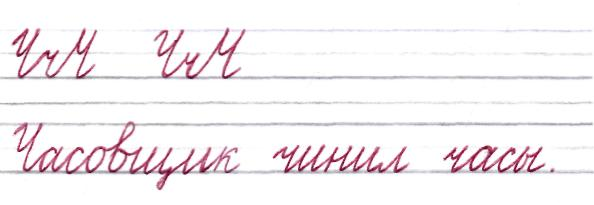 ЧчМ ЧчМ
Часовщик чинил часы.